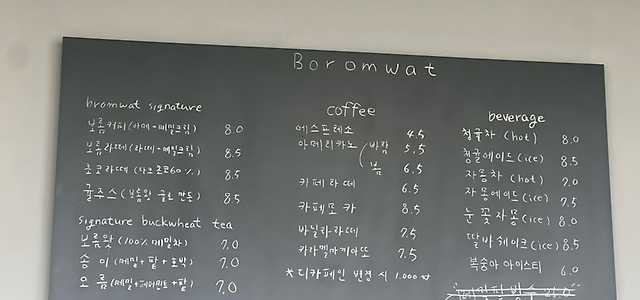 Boromwat
bromwat signature
보롬커피(아메+메밀크림) 8.0
보롬라떼(라떼+메밀크림) 8.5
초코라떼(다크초코60%) 8.5
귤주스(보롬왓 귤로 만든) 8.5
signature buckwheat tea
보롬왓(100% 메밀차) 7.0
송이(메밀+팥+호박) 7.0
오름(메밀+페퍼민트+팥) 7.0
coffee
에스프레소 4.5
아메리카노 바람 5.5
봄 6.5
카페라떼 6.5
카페모카 8.5
바닐라라떼 7.5
카라멜마끼아또 7.5
*디카페인 변경 시 1.000
beverage
청귤차(hot) 8.0
청귤에이드(ice) 8.5
자몽차(hot) 7.0
자몽에이드(ice) 7.5
눈꽃자몽(ice) 8.0
딸바쉐이크(ice) 8.5
복숭아 아이스티 6.0